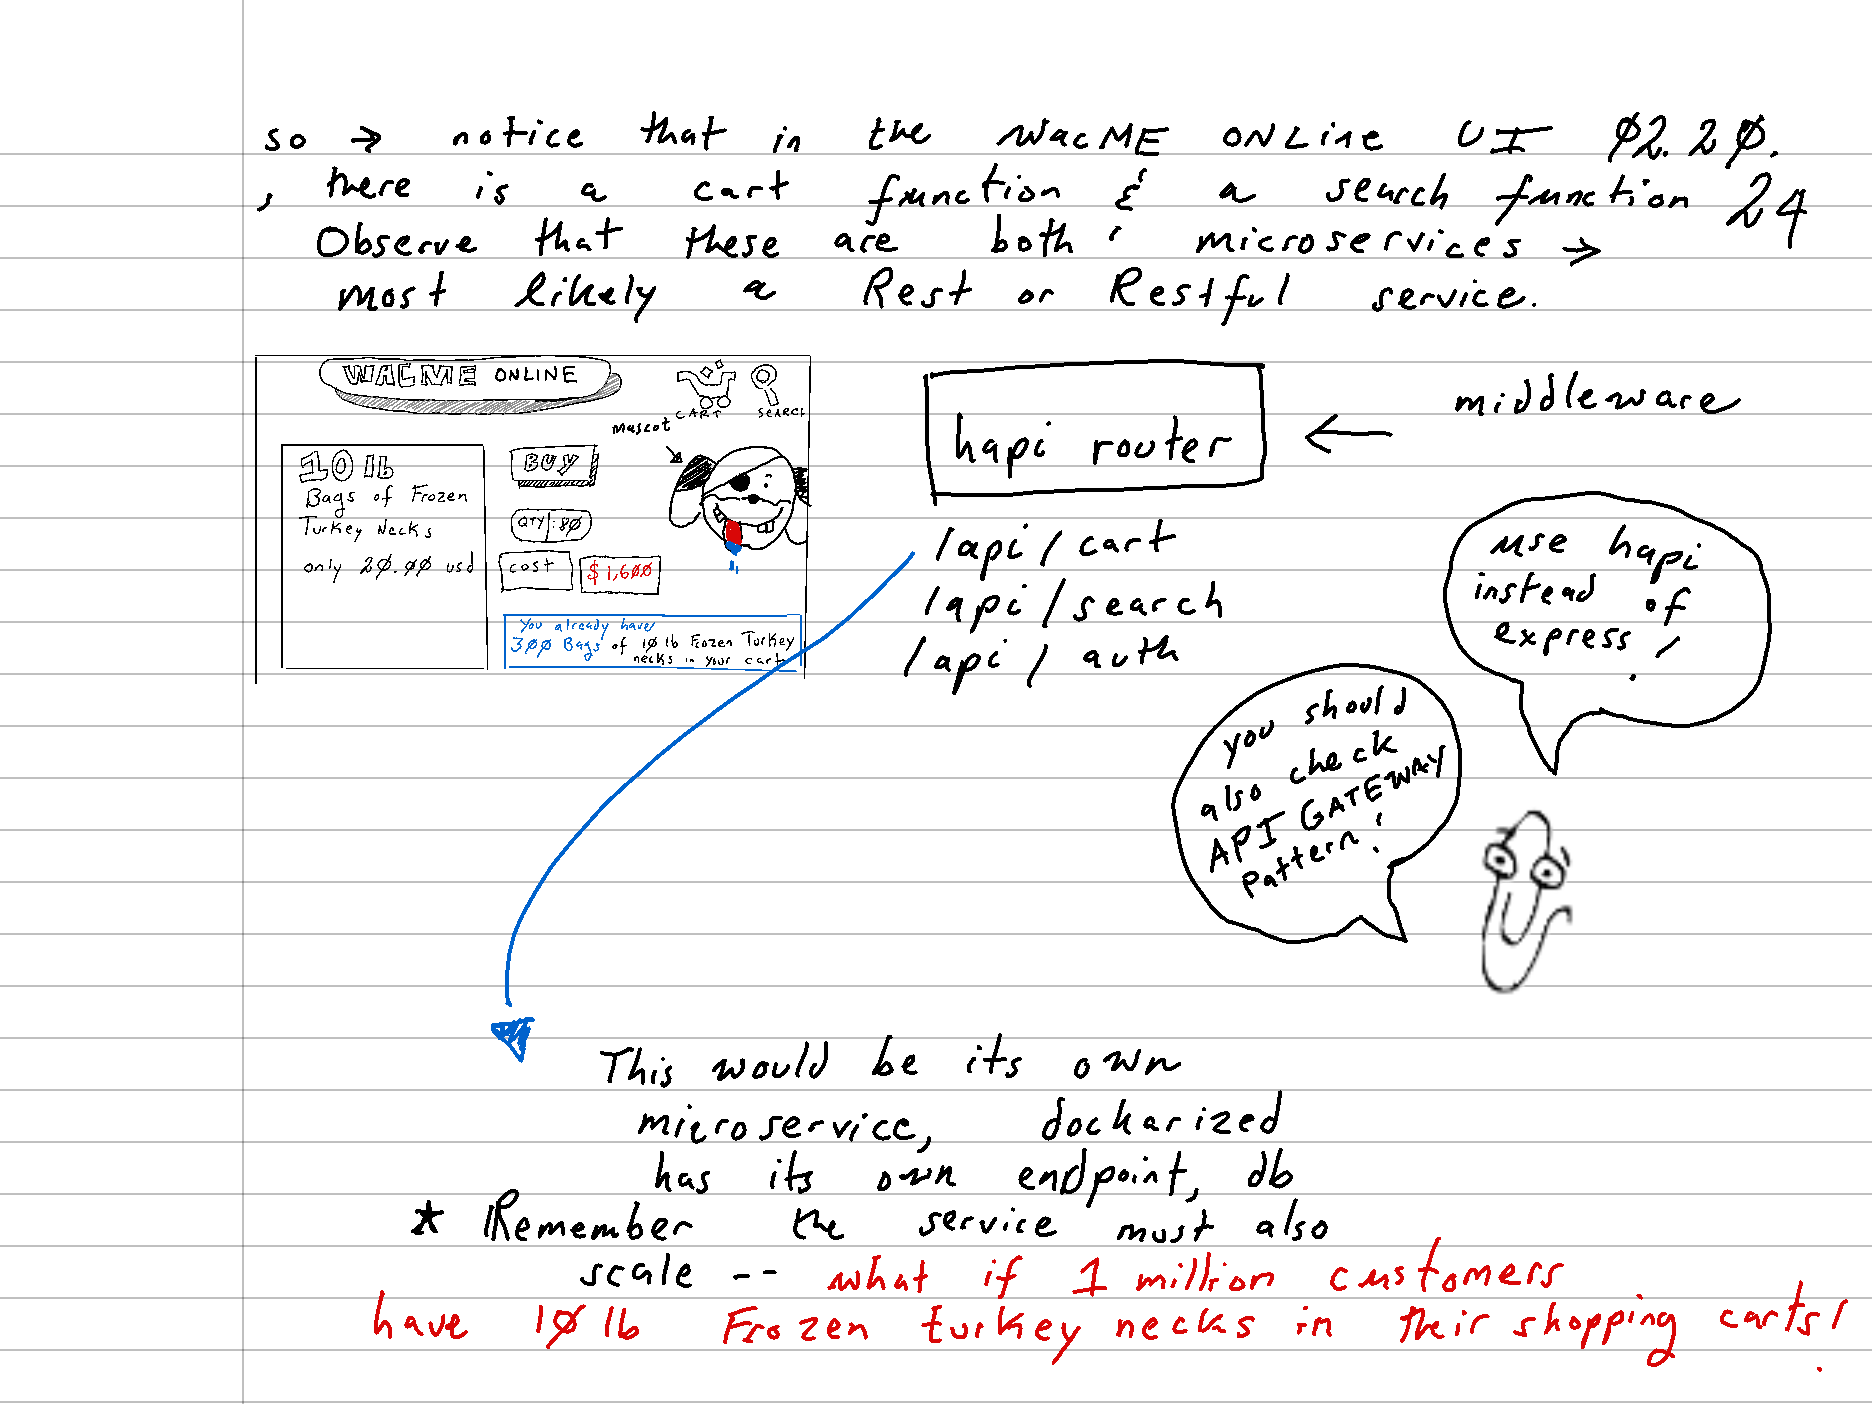 so → notice that in the WACME ONLine UI 02.20.
, there is a cart function & a search function 24
Observe that these are both ' microservices →
most likely a Rest or Restful service.
WACME ONLINE
CART
SEARCH
mascot
10 lb
Bags of Frozen
Turkey Necks
only 20.00 usd
BUY
QTY: 80
cost
$1,600
You already have
300 Bags of 10 lb Frozen Turkey
necks in your cart
hapi router
← middleware
/api/cart
/api/search
/api/auth
use hapi
instead of
express!
you should
also check
API GATEWAY
Pattern!
This would be its own
microservice, dockarized
has its own endpoint, db
* Remember the service must also
scale -- what if 1 million customers
have 10 lb Frozen turkey necks in their shopping carts!